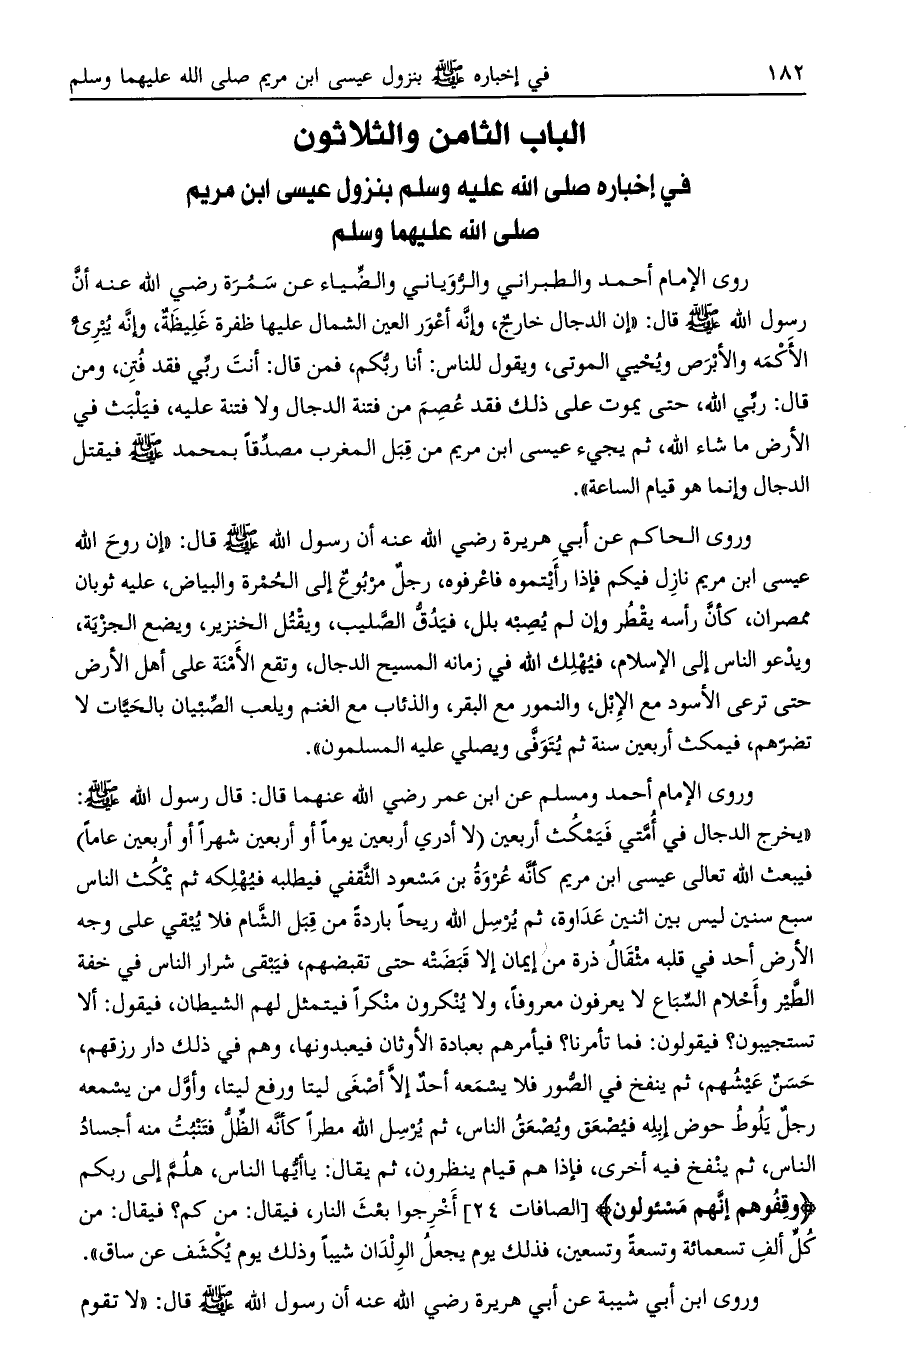 ١٨٢ في إخباره ﷺ بنزول عيسى ابن مريم صلى الله عليهما وسلم
الباب الثامن والثلاثون
في إخباره صلى الله عليه وسلم بنزول عيسى ابن مريم
صلى الله عليهما وسلم
روى الإمام أحمد والطبراني والرُّوَياني والضِّياء عن سَمُرَة رضي الله عنه أنَّ
رسول الله ﷺ قال: «إن الدجال خارجٌ، وإنَّه أعْوَر العين الشمال عليها ظفرة غَلِيظَةٌ، وإنَّه يُبْرِئُ
الأَكْمَه والأبْرَص ويُحْيي الموتى، ويقول للناس: أنا ربُّكم، فمن قال: أنتَ ربِّي فقد فُتِن، ومن
قال: ربِّي الله، حتى يموت على ذلك فقد عُصِمَ من فتنة الدجال ولا فتنة عليه، فيَلْبَث في
الأرض ما شاء الله، ثم يجيء عيسى ابن مريم من قِبَل المغرب مصدِّقاً بمحمد ﷺ فيقتل
الدجال وإنما هو قيام الساعة».
وروى الحاكم عن أبي هريرة رضي الله عنه أن رسول الله ﷺ قال: «إن روحَ الله
عيسى ابن مريم نازِل فيكم فإذا رأَيْتموه فاعْرفوه، رجلٌ مرْبُوعٌ إلى الحُمْرة والبياض، عليه ثوبان
ممصران، كأنَّ رأسه يقْطُر وإن لم يُصِبْه بلل، فيَدُقُّ الصَّليب، ويقْتُل الخنزير، ويضع الجزْيَة،
ويدْعو الناس إلى الإسلام، فيُهْلِك الله في زمانه المسيح الدجال، وتقع الأَمْنَة على أهل الأرض
حتى ترعى الأسود مع الإِبْل، والنمور مع البقر، والذئاب مع الغنم ويلعب الصِّبْيان بالحَيَّات لا
تضرّهم، فيمكث أربعين سنة ثم يُتَوَفَّى ويصلي عليه المسلمون».
وروى الإمام أحمد ومسلم عن ابن عمر رضي الله عنهما قال: قال رسول الله ﷺ:
«يخرج الدجال في أُمَّتي فَيَمْكُث أربعين (لا أدري أربعين يوماً أو أربعين شهراً أو أربعين عاماً)
فيبعث الله تعالى عيسى ابن مريم كأنَّه عُرْوَةُ بن مَسْعود الثَّقفي فيطلبه فيُهْلِكه ثم يمْكُث الناس
سبع سنين ليس بين اثنين عَدَاوة، ثم يُرْسِل الله ريحاً باردةً من قِبَل الشَّام فلا يُبْقي على وجه
الأرض أحد في قلبه مثْقَالُ ذرة من إيمان إلا قَبَضَتْه حتى تقبضهم، فيَبْقى شرار الناس في خفة
الطَّيْر وأَحْلام السِّبَاع لا يعرفون معروفاً، ولا يُنْكرون منْكراً فيتمثل لهم الشيطان، فيقول: ألا
تستجيبون؟ فيقولون: فما تأمرنا؟ فيأمرهم بعبادة الأوثان فيعبدونها، وهم في ذلك دار رزقهم،
حَسَنٌ عَيْشُهم، ثم ينفخ في الصُّور فلا يسْمَعه أحدٌ إلاَّ أصْغَى ليتا ورفع ليتا، وأوَّل من يسْمعه
رجلٌ يَلُوطُ حوض إبِله فيُصْعَق ويُصْعَقُ الناس، ثم يُرْسِل الله مطراً كأنَّه الظِّلُّ فتَنْبُتُ منه أجسادُ
الناس، ثم ينْفخ فيه أخرى، فإذا هم قيام ينظرون، ثم يقال: ياأيُّها الناس، هلُمَّ إلى ربكم
﴿وقِفُوهم إنَّهم مَسْئولون﴾ [الصافات ٢٤] أَخْرِجوا بعْثَ النار، فيقال: من كم؟ فيقال: من
كُلِّ ألفِ تسعمائة وتسعةً وتسعين، فذلك يوم يجعلُ الوِلْدَان شيباً وذلك يوم يُكْشَف عن ساق».
وروى ابن أبي شيبة عن أبي هريرة رضي الله عنه أن رسول الله ﷺ قال: «لا تقوم